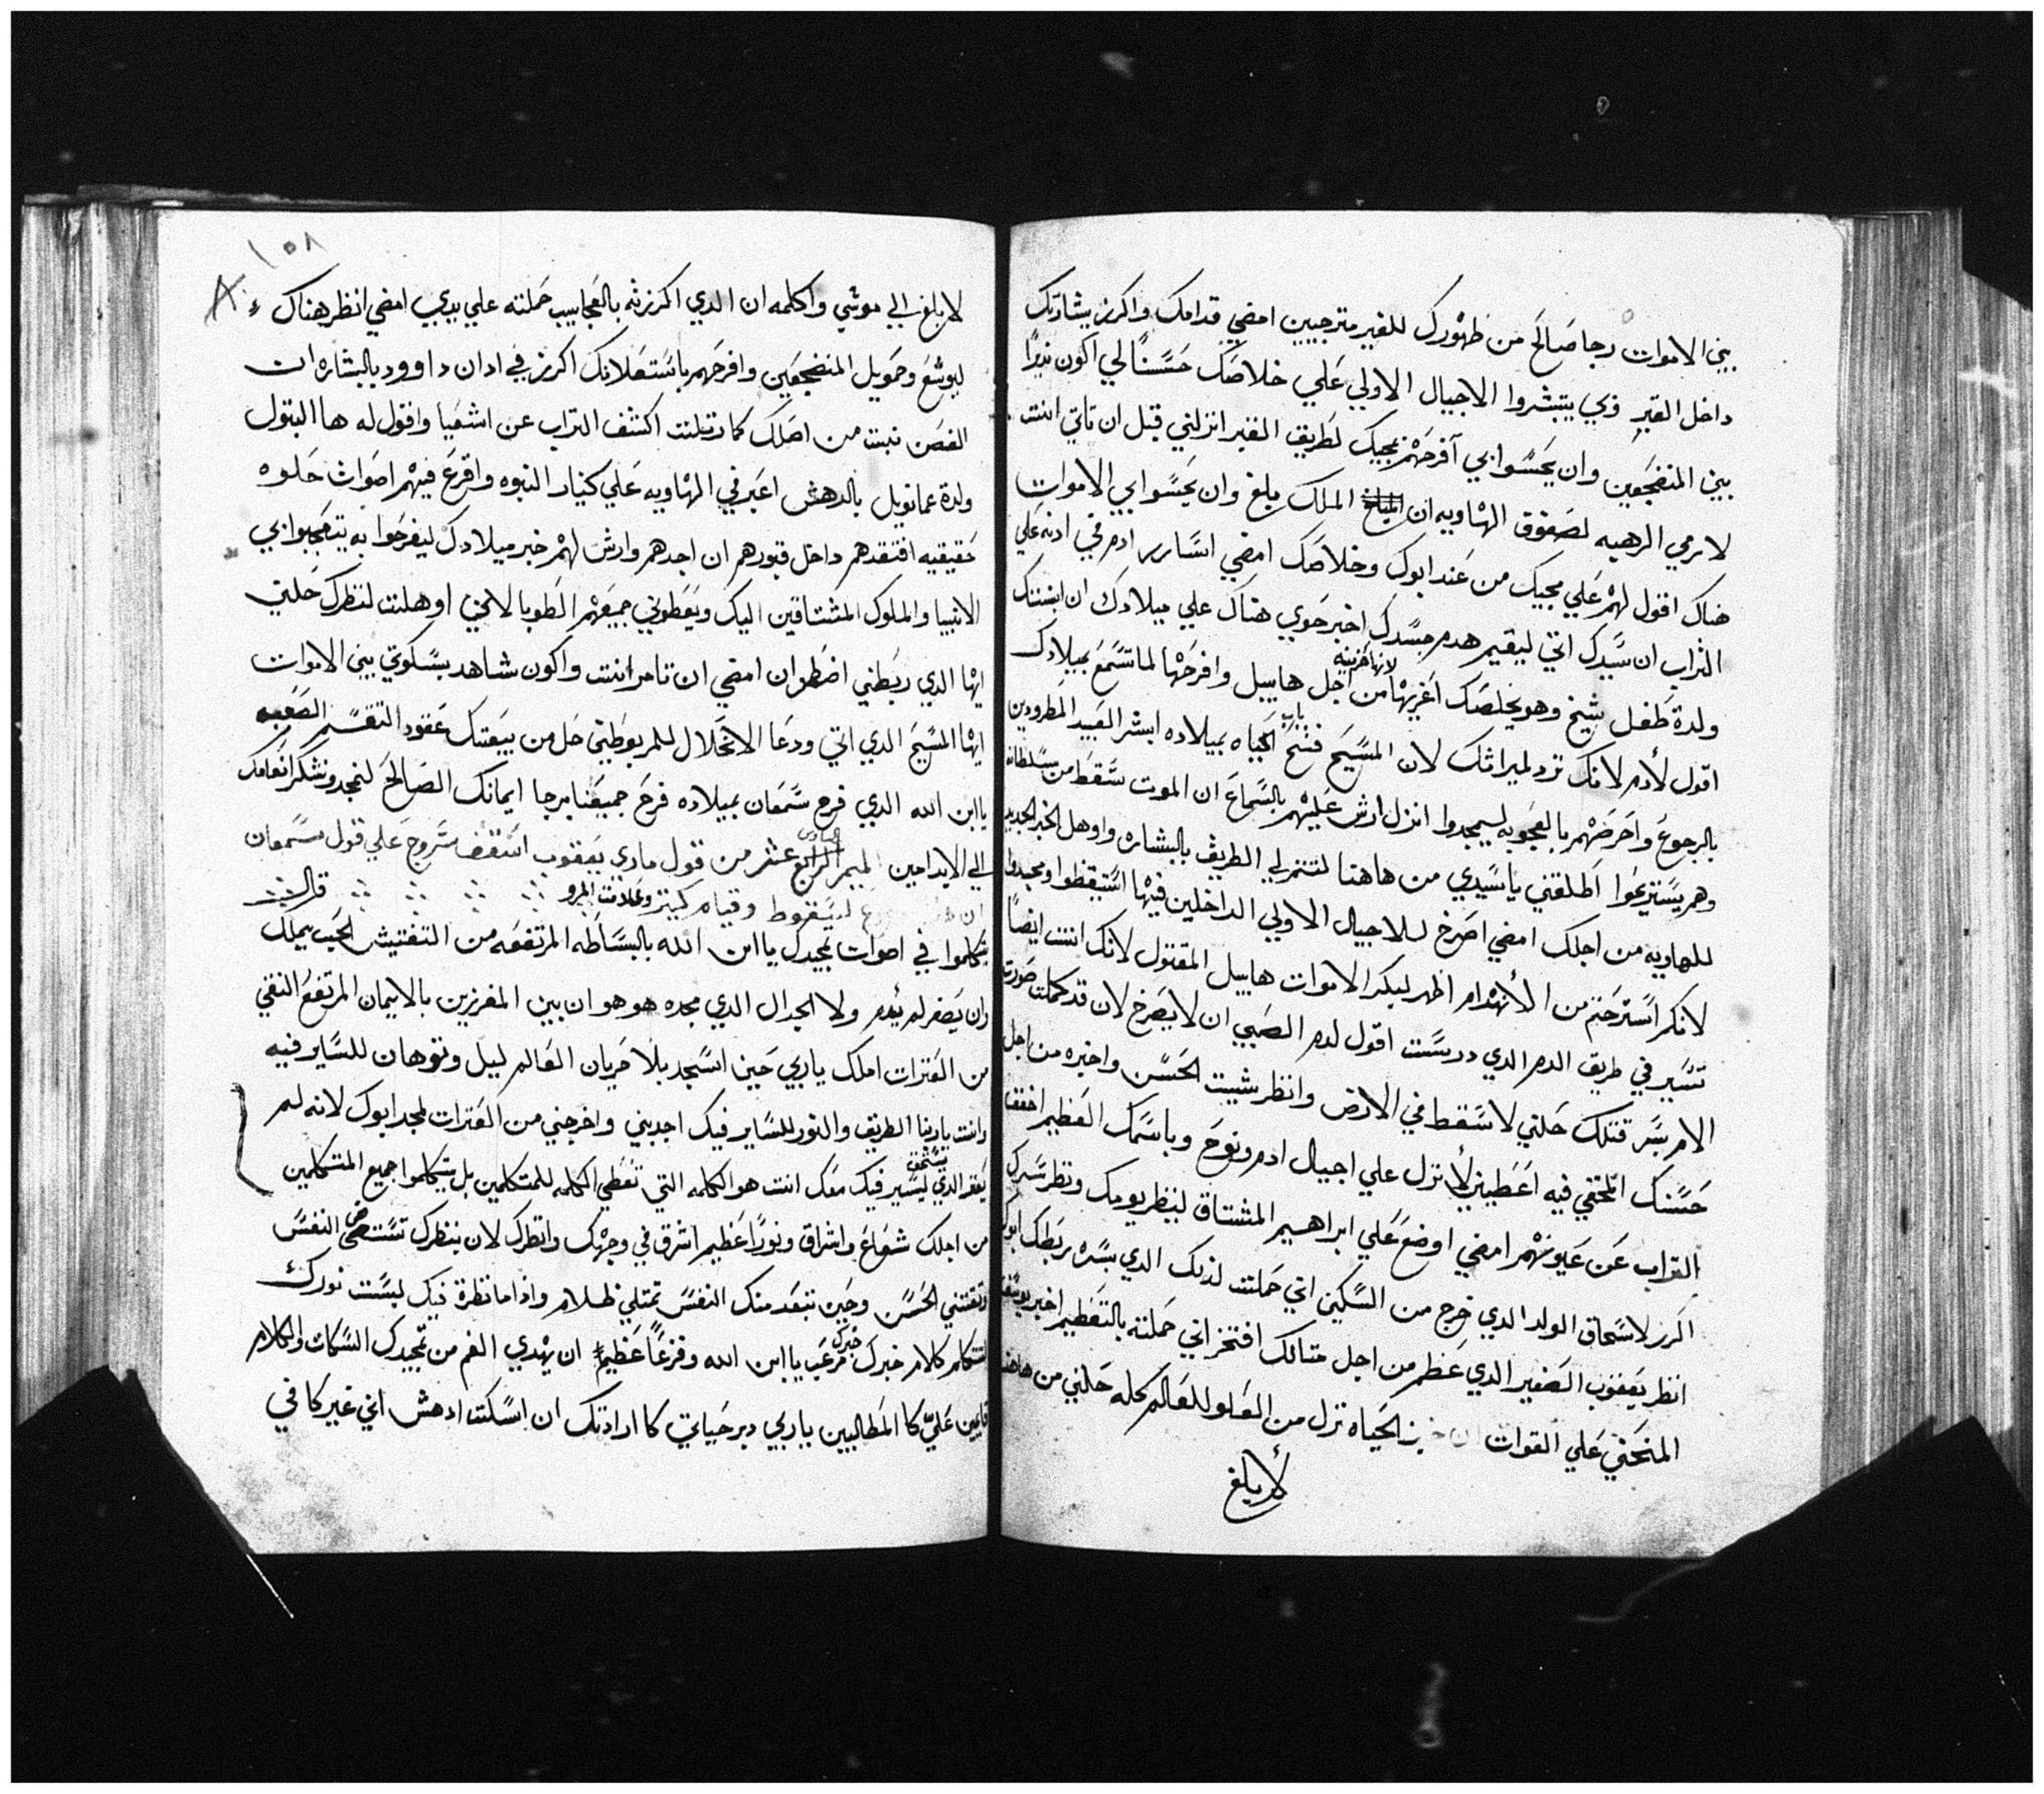 بين الاموات رجا صالح من ظهورك للقبر مترجيين امضي قدامك واكرز بشارتك
داخل القبر وبي يتبشروا الاجيال الاولي علي خلاصك حسنًا لي اكون نذيرًا
بين المنضجعين وان يحسوا بي افرحهم بمجيك لطريق القبر انزلني قبل ان تاتي انت
لارمي الرهبه لصفوف الهاويه ان الملك بلغ وان يحسوا بي الاموات
هناك اقول لهم علي مجيك من عند ابوك وخلاصك امضي اسارر ادم في ادنه علي
التراب ان سيدك اتي ليقيم هدم جسدك اخبر حوي هناك علي ميلادك ان ابنتك
ولدة طفل شيخ وهو يخلصك اعزيها لانها حزينه من اجل هابيل وافرحها لما تسمع بميلادك
اقول لأدم لانك ترد لميراثك لان المسيح فتح باب الحياه بميلاده ابشر العبيد المطرودين
بالرجوع واحرضهم بالعجوبه ليسمجدوا انزل ارش عليهم بالسماع ان الموت سقط من سلطانه
وهم يستريحوا اطلقني ياسيدي من هاهنا لتنزلي الطريق بالبشاره واوهل الخبر الجديد
للهاويه من اجلك امضي اصرخ للاجيال الاولي الداخلين فيها استيقظوا ومجدوا
لانكم استرحتم من الأنهدام اظهر لبكر الاموات هابيل المقتول لانك انت ايضًا
تسير في طريق الدم الدي درست اقول لدم الصبي ان لا يصرخ لان قد كملت صورت
الامر بسر قتلك حلني لاسقط في الارض وانظر شيت الحسن واخبره من اجل
حسنك التختفي فيه اعطيني لأنزل علي اجيال ادم ونوح وباسمك العظيم اخفف
التراب عن عيونهم امضي اوضع علي ابراهيم المشتاق لينظر يومك ونظر سرك
اكرز لاسحاق الولد الدي خرج من السكين اني حملت لذلك الدي بسره ربطك ابوك
انظر يعقوب الصغير الدي عظم من اجل متالك افتخر اني حملته بالتعظيم اخبر يوسف
المنحني علي القوات ان خبز الحياه نزل من العلو للعالم كله حلني من هاهنا
لأبلغ
١٥٨
لابلغ الي موسي واكلمه ان الدي اكرزته بالعجاييب حملته علي يدي امضي انظر هناك
ليوشع وحمويل المنضجعين وافرحهم باستعلانك اكرز في ادان داوود بالبشاره ات
الغصن نبت من اصلك كما رتلت اكشف التراب عن اشعيا واقول له ها البتول
ولدة عمانويل بالدهش اعبر في الهاويه علي كنيار النبوه واقرع فيهم اصوات حلوه
حقيقيه افتقدهم داخل قبورهم ان اجدهم وارش لهم خبر ميلادك ليفرحوا به يتعجبوا بي
الانبيا والملوك المشتاقين اليك ويعطوني جميعهم الطوبا لانني اوهلت لنظرك حلني
ايها الدي ربطني اضطر ان امضي ان تامر انت واكون شاهد بسكوتي بين الاموات
ايها المسيح الدي اتي ودعا الانحلال للمربوطين حل من بيعتك عقود التقسم الصعبه
ياابن الله الدي فرح سمعان بميلاده فرح جميعنا برجا ايمانك الصالح لنمجد ونشكر انعامك
الي الابد امين الميمر السادس عشر من قول ماري يعقوب اسقف سروج علي قول سمعان
ان هذا موضوع لسقوط وقيام كتير وعلامت المرو قال
يتكلموا في اصوات بمجدك يا ابن الله بالبساطه المرتفعه من التفتيش الحب يملك
وان يصغر لم يندم ولا الجدال الدي مجده هوهو ان بين المفرزين بالايمان المرتفع النقي
من العترات املك ياربي حين اسجد بلا حريان العالم ليل وتوهان للساير فيه
وانت ياربنا الطريق والنور للساير فيك اجدبني واخرجني من العترات لمجد ابوك لانه لم
يعتر الدي يستحق ليسير فيك معك انت هو الكلمه التي تعطي الكلمه للمتكلمين بل يتكلموا جميع المتكلمين
من اجلك شعاع واشراق ونورًا عظيم اشرق في وجهك وانظرك لان بنظرك تستضي النفس
وتقتني الحسن وحين تبعد منك النفس تمتلي ظلام واذا ما نظرة فيك لبست نورك
لنتكلم كلام خبرك مرعب ياابن الله وفزعًا عظيم ان يهدي الفم من تمجيدك السكات والكلام
قايمين عليّ كا المطالبين ياربي دبر حياتي كا ارادتك ان اسكت ادهش اني غير كافي